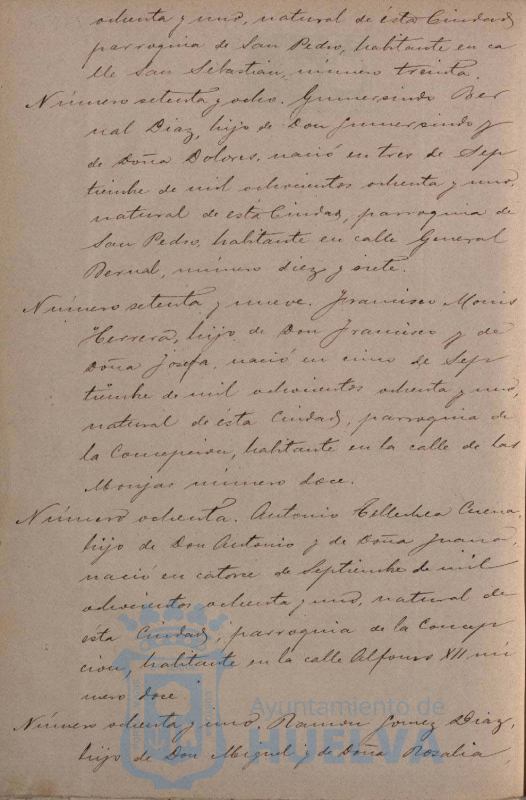 ochenta y uno, natural de ésta Ciudad,
parroquia de San Pedro, habitante en ca
lle San Sebastian, número treinta.
Número setenta y ocho. Gumersindo Ber
nal Diaz, hijo de Don Gumersindo y
de Doña Dolores, nació en tres de Sep
tiembre de mil ochocientos ochenta y uno,
natural de esta Ciudad, parroquia de
San Pedro, habitante en calle General
Bernal, número diez y siete.
Número setenta y nueve. Francisco
Herrera, hijo de Don Francisco y de
Doña Josefa, nació en cinco de Sep
tiembre de mil ochocientos ochenta y uno,
natural de ésta Ciudad, parroquia de
la Concepcion, habitante en la calle de las
Monjas número doce.
Número ochenta. Antonio Tellechea
hijo de Don Antonio y de Doña Juana,
nació en catorce de Septiembre de mil
ochocientos ochenta y uno, natural de
ésta Ciudad, parroquia de la Concep
cion, habitante en la calle Alfonso XII nú
mero doce
Número ochenta y uno. Ramon Gomez Diaz,
hijo de Don Miguel y de Doña Rosalia,
Ayuntamiento de
HUELVA